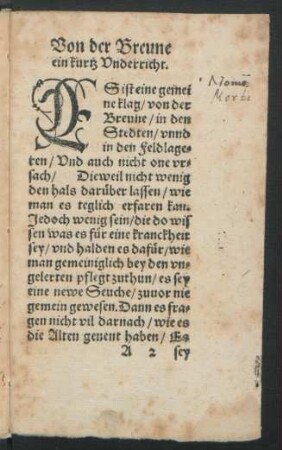 Von der Breune
ein kurtz Vnderricht.
Nomē
Morbi
ES ist eine gemei
ne klag / von der
Breune / in den
Stedten / vnnd
in den Feldlage-
ren / Vnd auch nicht one vr-
sach / Dieweil nicht wenig
den hals darüber lassen / wie
man es teglich erfaren kan.
Jedoch wenig sein / die do wis
sen was es für eine kranckheit
sey / vnd halden es dafür / wie
man gemeiniglich bey den vn-
gelerten pflegt zuthun / es sey
eine newe Seuche / zuuor nie
gemein gewesen. Dann es fra-
gen nicht vil darnach / wie es
die Alten genent haben / Es
A 2 sey